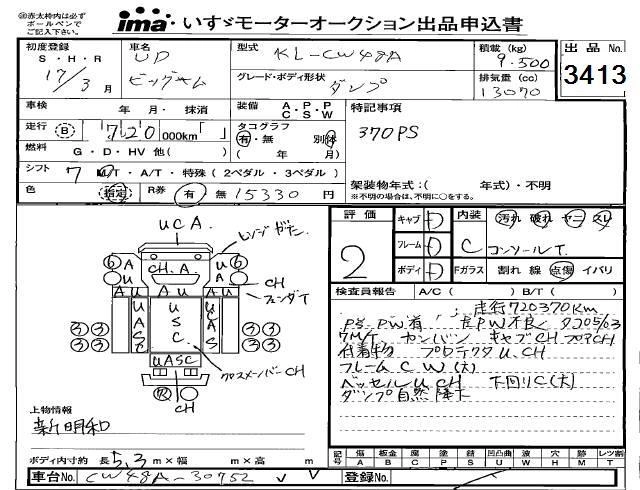 赤太枠内は必ずボールペンでご記入下さい。
ima いすゞモーターオークション出品申込書
初度登録 S・H・R 17/3月
車名 UD ビッグサム
型式 KL-CW48A
積載(kg) 9.500
出品No. 3413
グレード・ボディ形状 ダンプ
排気量(cc) 13070
車検 年 月・抹消
装備 A・P・P C・S・W
特記事項
走行 B 720 000km
タコグラフ 有・無 別体 (年 月)
370PS
燃料 G・D・HV 他( )
シフト 7 M/T・A/T・特殊(2ペダル・3ペダル)
架装物年式:( 年式)・不明
※不明の場合は、不明に○をする。
色 指定 R券 有 無 15330円
評価 2
キャブ D
フレーム D
ボディ D
内装 C 汚れ 破れ ヤニ スレ
コンソールT.
Fガラス 割れ 線 点傷 イバリ
検査員報告 A/C( ) B/T( )
走行720370Km
PS.PW有
7M/T キャブCH フロアCH
付着物 プロテクタU.CH
フレームCW(大)
ベッセルUCH 下回りC(大)
ダンプ自然降下
UCA
CH.A
A U
USC
UASC
CH
CH
クロスメンバーCH
上物情報
新明和
ボディ内寸約 長5.3m×幅 m×高 m
記号 傷A 板金B 腐C 塗P 錆S 凹凸曲U 波W 穴H 跡M レツ割T
車台No. CW48A-30752
登録No.